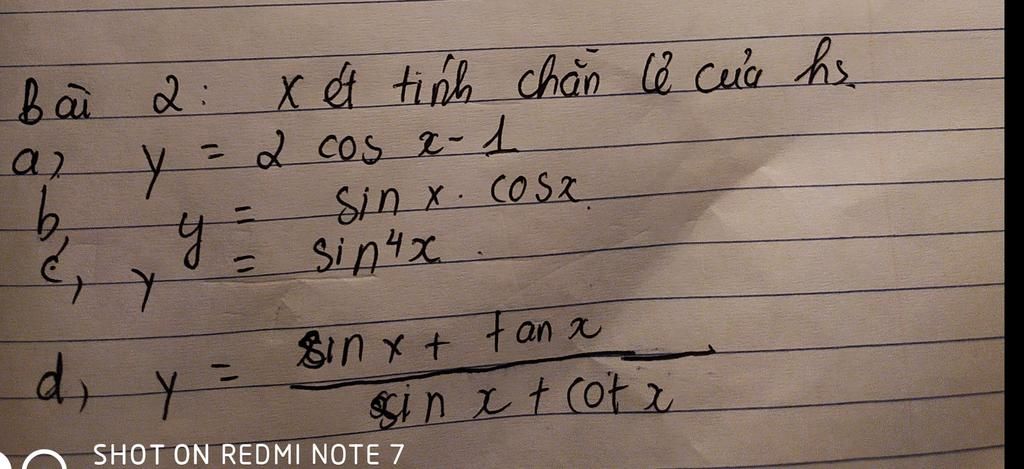 Bài 2: Xét tính chẵn lẻ của hs
a, y = 2 cos x - 1
b, y = sin x . cosx.
c, y = sin⁴x.
d, y = sin x + tan x
sin x + cot x
SHOT ON REDMI NOTE 7